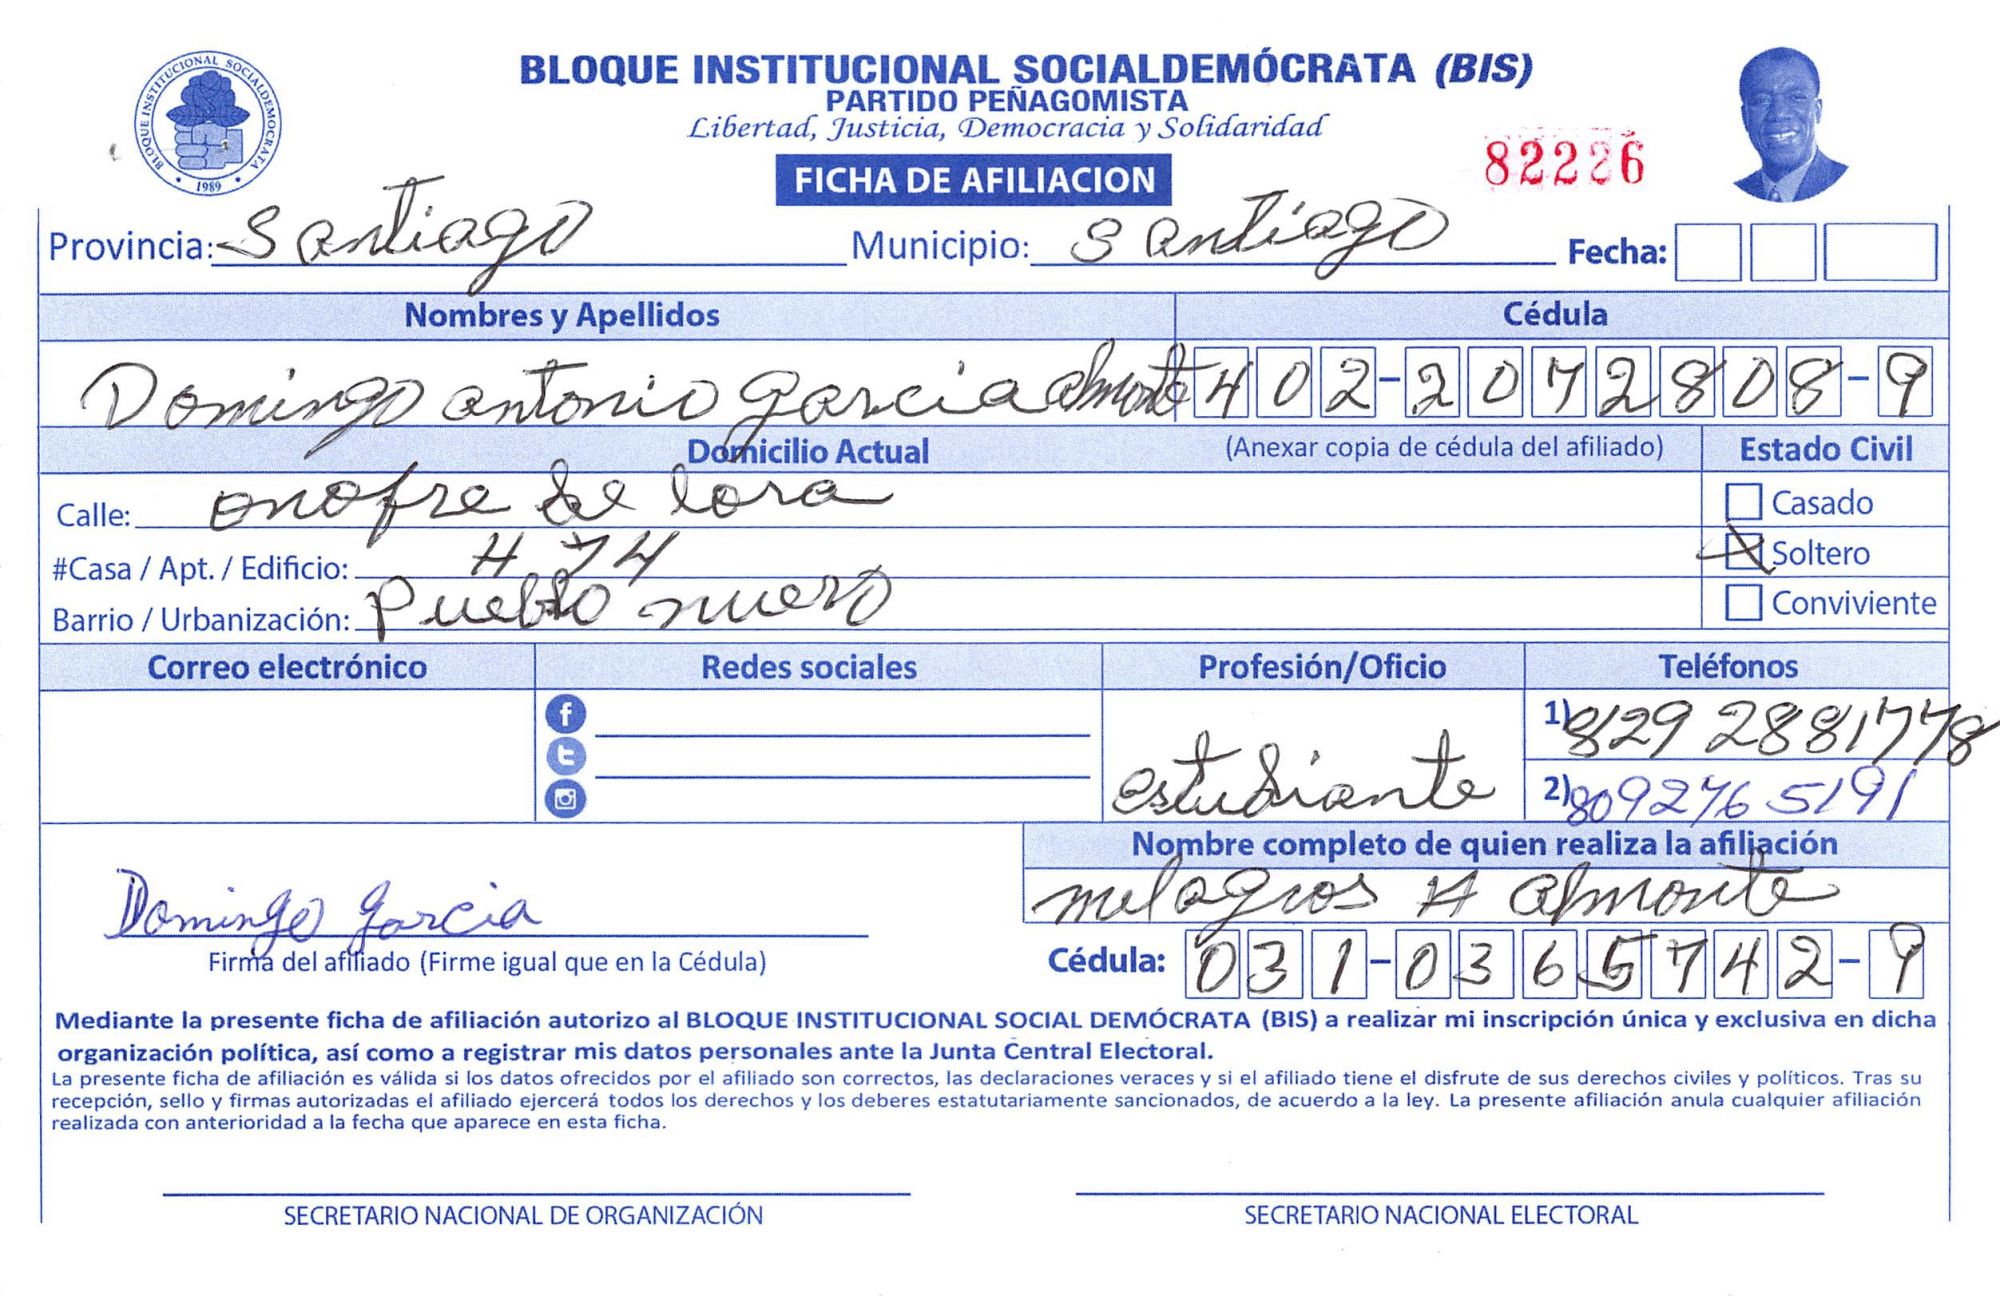 BLOQUE INSTITUCIONAL SOCIALDEMÓCRATA (BIS)
PARTIDO PEÑAGOMISTA
Libertad, Justicia, Democracia y Solidaridad
BLOQUE INSTITUCIONAL SOCIALDEMOCRATA
1989
82226
FICHA DE AFILIACION
Provincia: Santiago Municipio: Santiago Fecha:
Nombres y Apellidos Cédula
Domingo antonio garcia almonte 402-2072808-9
Domicilio Actual (Anexar copia de cédula del afiliado) Estado Civil
Calle: onofre de lora Casado
#Casa / Apt. / Edificio: # 74 Soltero
Barrio / Urbanización: Pueblo nuevo Conviviente
Correo electrónico Redes sociales Profesión/Oficio Teléfonos
estudiante 1) 829 2881778
2) 809276 5191
Nombre completo de quien realiza la afiliación
milagros A almonte
Domingo garcia
Firma del afiliado (Firme igual que en la Cédula) Cédula: 031-0365742-9
Mediante la presente ficha de afiliación autorizo al BLOQUE INSTITUCIONAL SOCIAL DEMÓCRATA (BIS) a realizar mi inscripción única y exclusiva en dicha
organización política, así como a registrar mis datos personales ante la Junta Central Electoral.
La presente ficha de afiliación es válida si los datos ofrecidos por el afiliado son correctos, las declaraciones veraces y si el afiliado tiene el disfrute de sus derechos civiles y políticos. Tras su
recepción, sello y firmas autorizadas el afiliado ejercerá todos los derechos y los deberes estatutariamente sancionados, de acuerdo a la ley. La presente afiliación anula cualquier afiliación
realizada con anterioridad a la fecha que aparece en esta ficha.
SECRETARIO NACIONAL DE ORGANIZACIÓN SECRETARIO NACIONAL ELECTORAL